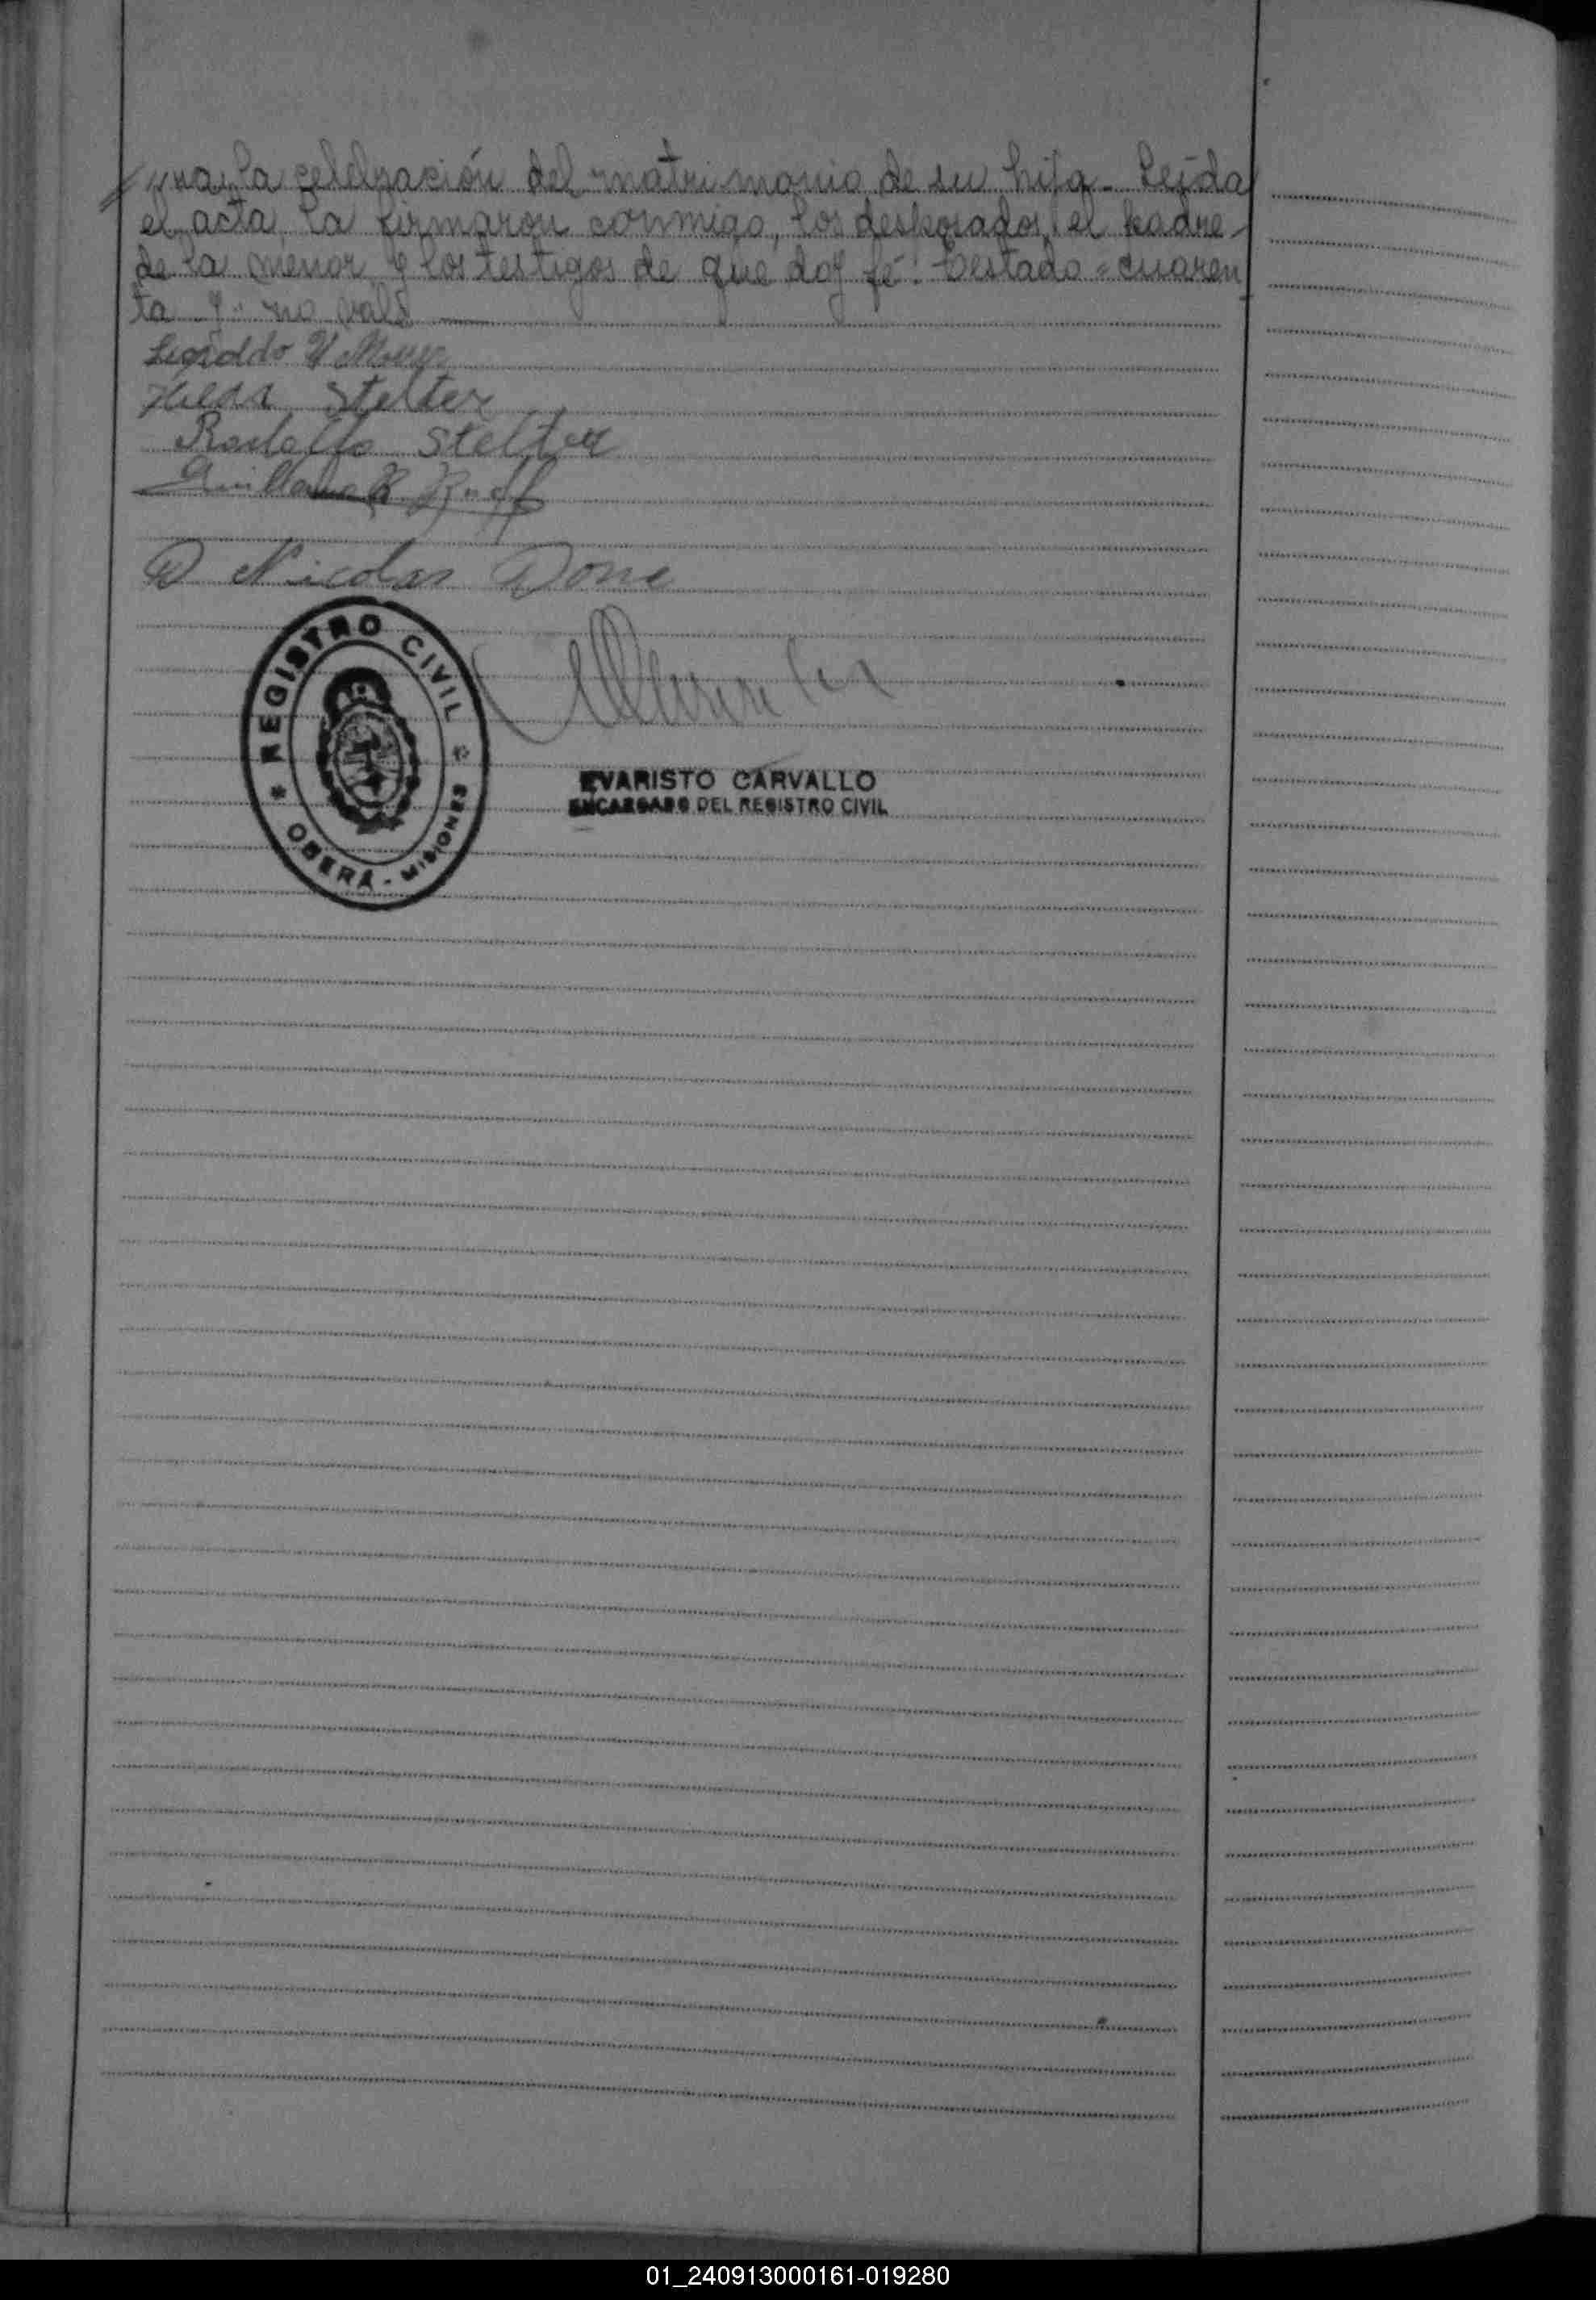 para la celebración del matrimonio de su hija - Leída
el acta, la firmaron conmigo, los desposados, el padre -
de la menor y los testigos de que doy fé: Testado = cuaren
ta y = no vale
Stelter
Rodolfo Stelter
D Nicolas Done
REGISTRO CIVIL
OBERÁ - MISIONES
EVARISTO CARVALLO
ENCARGADO DEL REGISTRO CIVIL
01_240913000161-019280